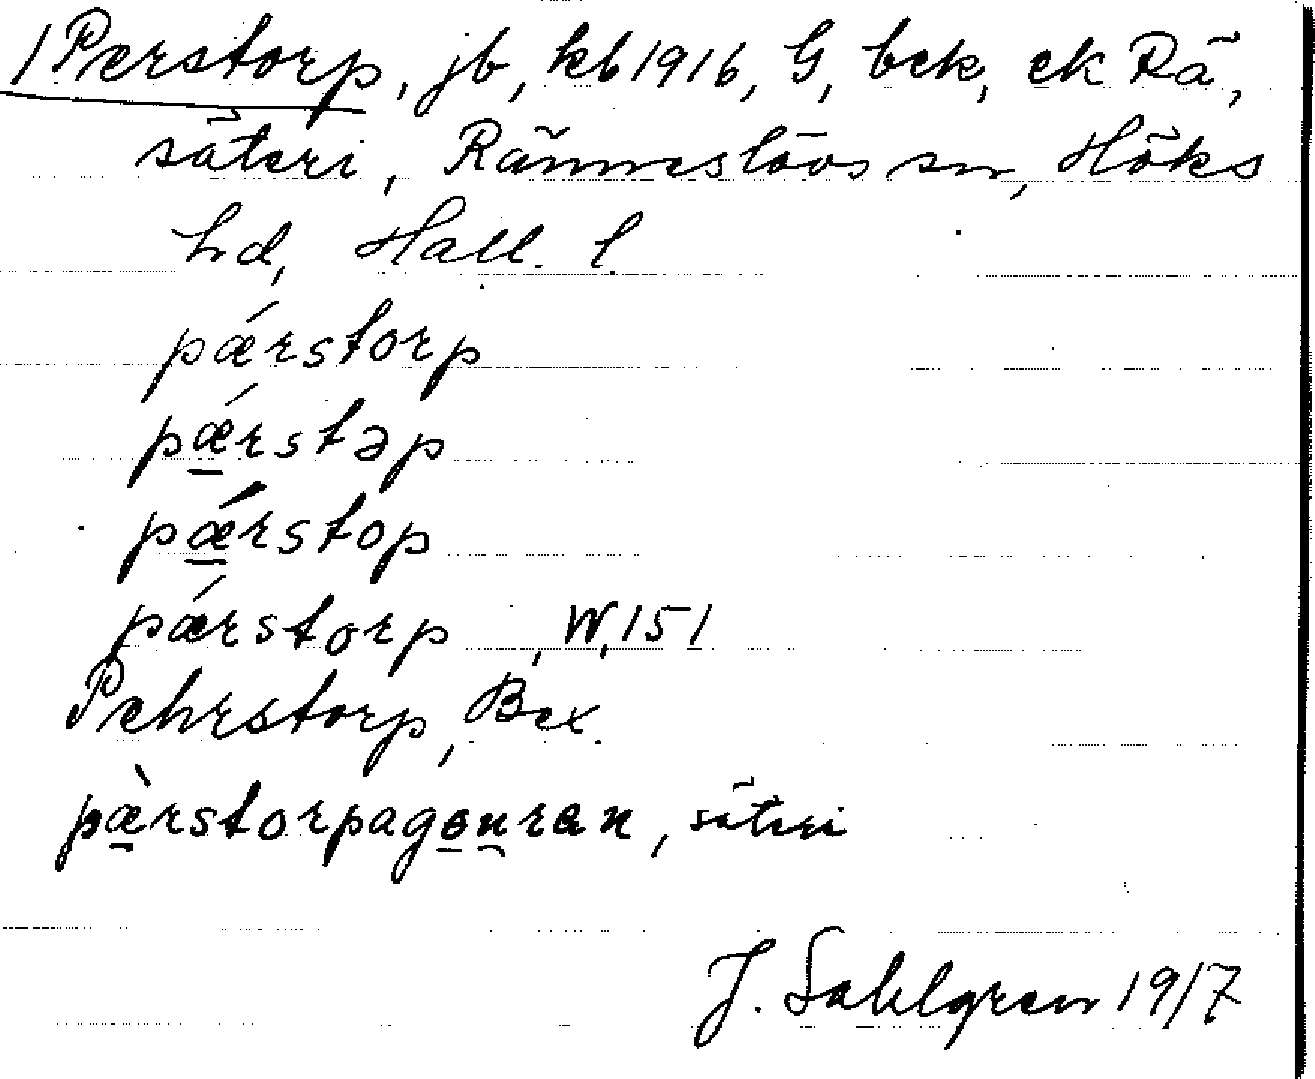 1 Perstorp, jb, kb 1916, G, bek, ek Rä,
säteri, Ränneslövs sn, Höks
hd, Hall. l.
pǽrstorp
pǽrstəp
pǽrstop
pǽrstorp, W, 151
Pehrstorp, Bex.
pæ̀rstorpagɵu̯ran, säteri
J. Sahlgren 1917